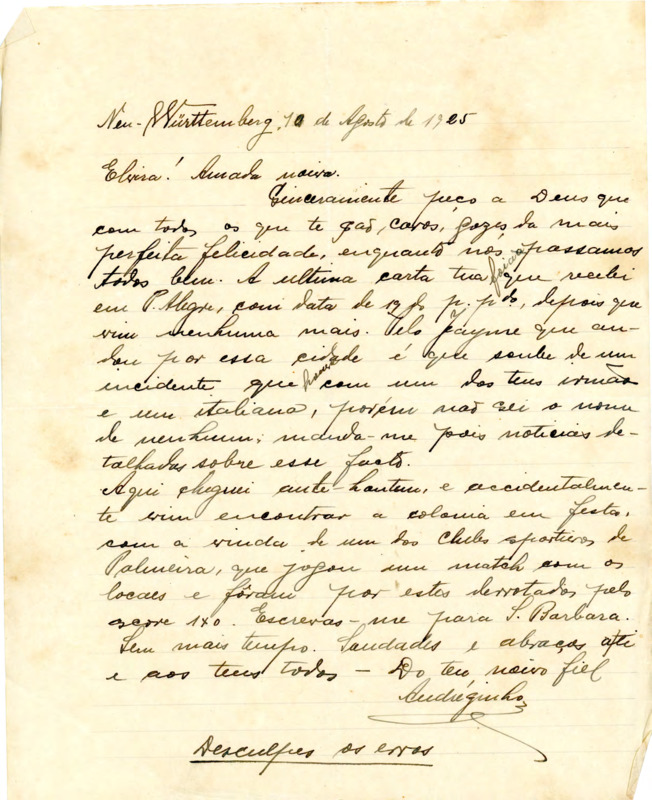 Neu-Württemberg, 10 de Agosto de 1925
Elvira! Amada noiva.
Sinceramente peço a Deus que
com todos os que te são, caros, gozes da mais
perfeita felicidade, enquanto nós passamos
todos bem. A ultima carta tua que recebi
em P. Alegre, com data de 19 do p. pdo, depois que
vim nenhuma mais. Pelo Jayme que an-
dou por essa cidade é que soube de um
incidente que houve com um dos teus irmãos
e um italiano, porém não sei o nome
de nenhum; manda-me pois noticias de-
talhadas sobre esse facto.
Aqui cheguei ante-hontem, e accidentalmen-
te vim encontrar a colonia em festa,
com a vinda de um dos clubs sportivos de
Palmeira, que jogou um match com os
locaes e fôram por estes derrotados pelo
score 1x0. Escrevas-me para S. Barbara.
Sem mais tempo. Saudades e abraços a ti
e aos teus todos – Do teu noivo fiel
Andréginho
Desculpes os erros